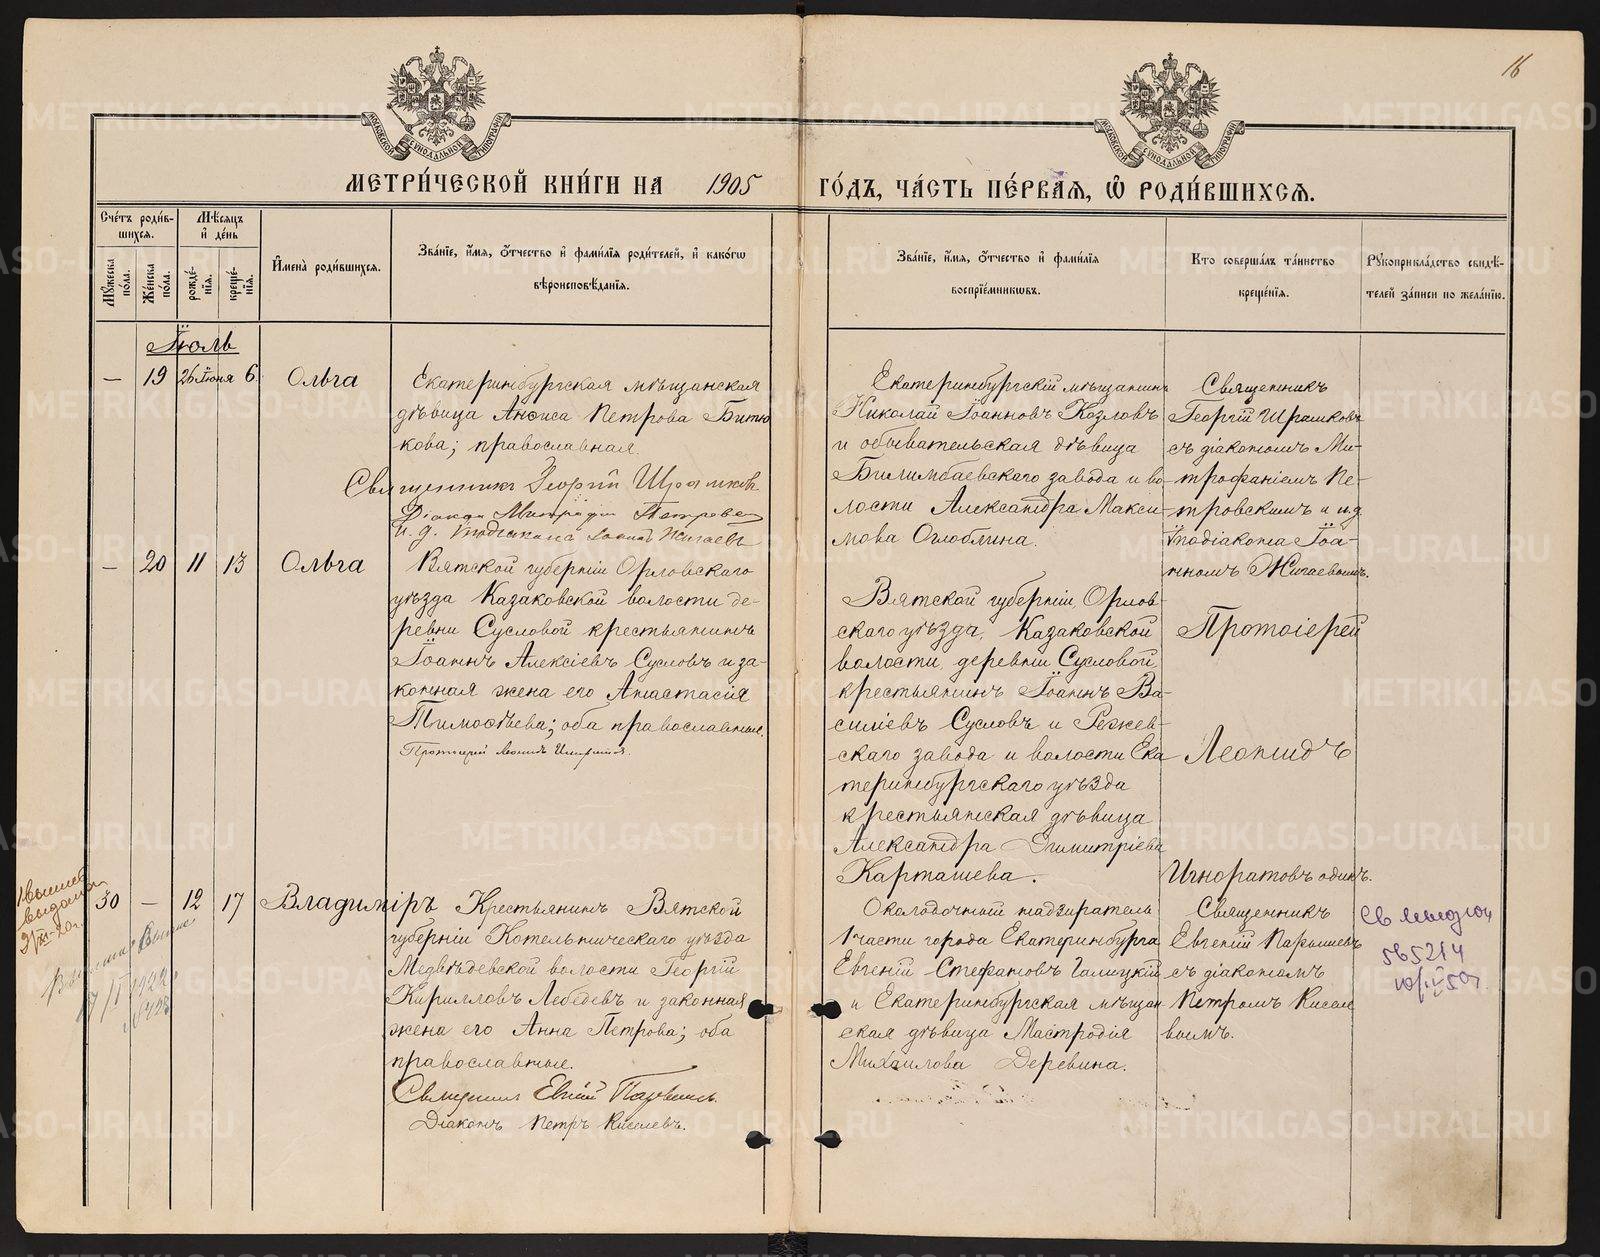 16
МОСКОВСКОЙ СѴНОДАЛЬНОЙ ТИПОГРАФІИ
МОСКОВСКОЙ СѴНОДАЛЬНОЙ ТИПОГРАФІИ
МЕТРИ́ЧЕСКОЙ КНИ́ГИ НА 1905 ГО́ДЪ, ЧА́СТЬ ПЕ́РВАѦ, Ѡ҆ РОДИ́ВШИХСѦ.
Сче́тъ роди́в-
шихсѧ.
Мꙋ́жеска по́ла.
Же́нска по́ла.
Мѣ́сѧцъ
и҆ де́нь
рожде́-
нїѧ.
креще́-
нїѧ.
И҆мена̀ роди́вшихсѧ.
Зва́нїе, и҆́мѧ, ѻ҆́тчество и҆ фами́лїѧ роди́телей, и҆ како́гѡ
вѣроисповѣ́данїѧ.
Зва́нїе, и҆́мѧ, ѻ҆́тчество и҆ фами́лїѧ
воспрїе́мникѡвъ.
Кто соверша́лъ та́инство
креще́нїѧ.
Рꙋкоприкла́дство свидѣ́-
телей за́писи по жела́нїю.
Іюль
— 19 26 Іюня 6 Ольга
Екатеринбургская мѣщанская
дѣвица Анѳиса Петрова Битю
кова; православная.
Священникъ Георгій Шрамковъ
Діаконъ Митрофанъ Петровскій
и. д. Іподіакона Іоаннъ Жигаевъ
Екатеринбургскій мѣщанинъ
Николай Іоанновъ Козловъ
и обывательская дѣвица
Билимбаевскаго завода и во-
лости Александра Макси-
мова Оглоблина.
Священникъ
Георгій Шрамковъ
съ діакономъ Ми-
трофаніемъ Пе-
тровскимъ и и.д.
Іподіакона Іоа-
нномъ Жигаевымъ.
— 20 11 13 Ольга
Вятской губерніи Орловскаго
уѣзда Казаковской волости де-
ревни Сусловой крестьянинъ
Іоаннъ Алексіевъ Сусловъ и за-
конная жена его Анастасія
Тимоѳѣева; оба православные.
Протоіерей Леонидъ Игноратовъ.
Вятской губерніи, Орлов-
скаго уѣзда, Казаковской
волости, деревни Сусловой,
крестьянинъ Іоаннъ Ва-
силіевъ Сусловъ и Режев-
скаго завода и волости Ека
теринбургскаго уѣзда
крестьянская дѣвица
Александра Димитріева
Карташева.
Протоіерей
Леонидъ
Игноратовъ одинъ.
30 — 12 17 Владиміръ
Крестьянинъ Вятской
губерніи Котельническаго уѣзда
Медвѣдевской волости Георгій
Кирилловъ Лебедевъ и законная
жена его Анна Петрова; оба
православные.
Священникъ Евгеній Парышевъ.
Діаконъ Петръ Киселевъ.
Околодочный надзиратель
1 части города Екатеринбурга
Евгеній Стефановъ Галицкій
и Екатеринбургская мѣщан
ская дѣвица Мастродія
Михаилова Деревина.
Священникъ
Евгеній Парышевъ
съ діакономъ
Петромъ Кисел
вымъ.
565214
METRIKI.GASO-URAL.RU